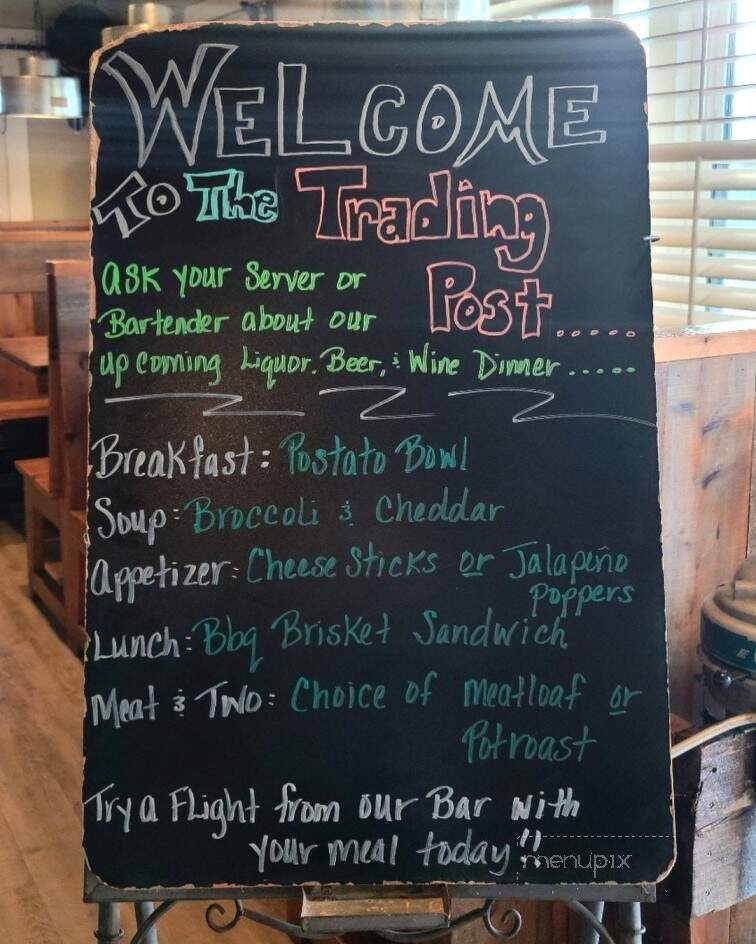 WELCOME
To The Trading
Post.....
Ask your Server or
Bartender about our
upcoming Liquor. Beer, & Wine Dinner.....
Breakfast: Postato Bowl
Soup: Broccoli & Cheddar
Appetizer: Cheese Sticks or Jalapeño
Poppers
Lunch: Bbq Brisket Sandwich
Meat & Two: Choice of meatloaf or
Potroast
Try a Flight from our Bar with
your meal today!!
menupix